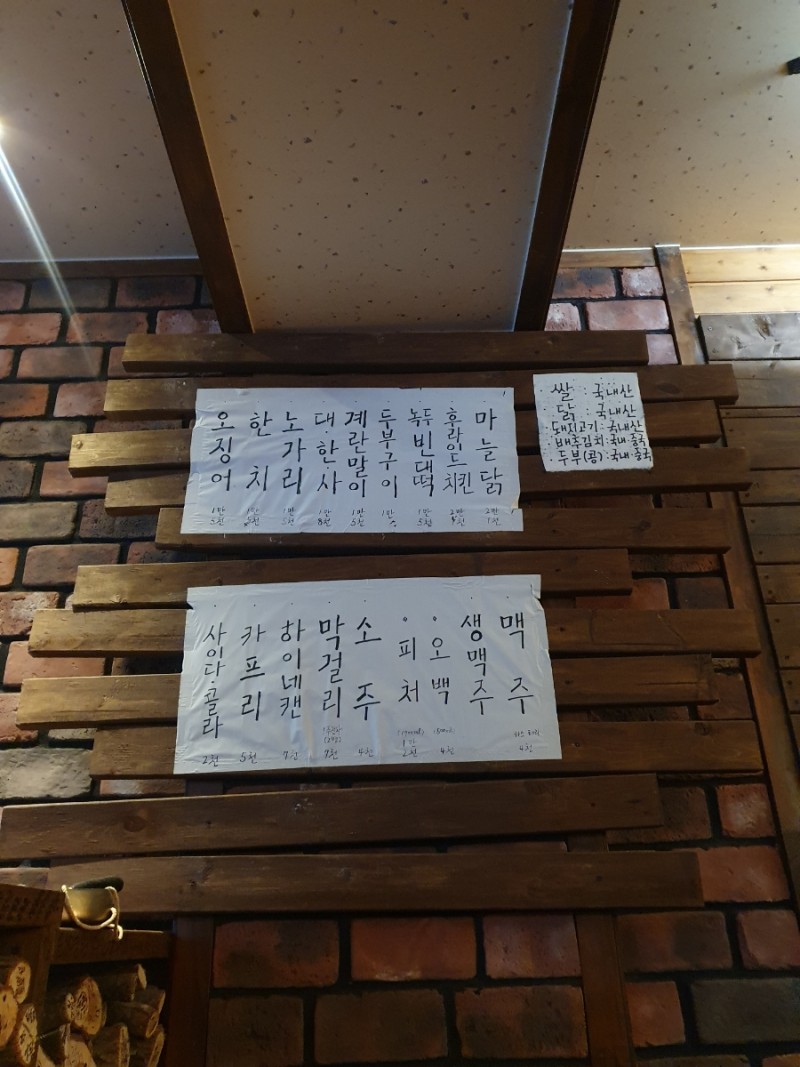 마늘닭 2만 1천
후라이드 치킨 2만
녹두 빈대떡 1만 5천
두부구이 1만
계란말이 1만 5천
대·한·사 1만 8천
노가리 1만
한치 1만
오징어 1만 5천
쌀 : 국내산
닭 : 국내산
돼지고기 : 국내산
배추김치 : 국내·중국
두부(콩) : 국내·중국
맥주 4천
생맥주
·오백 4천
·피처 1만 2천
소주 4천
막걸리 7천
하이네캔 7천
카프리 5천
사이다·콜라 2천